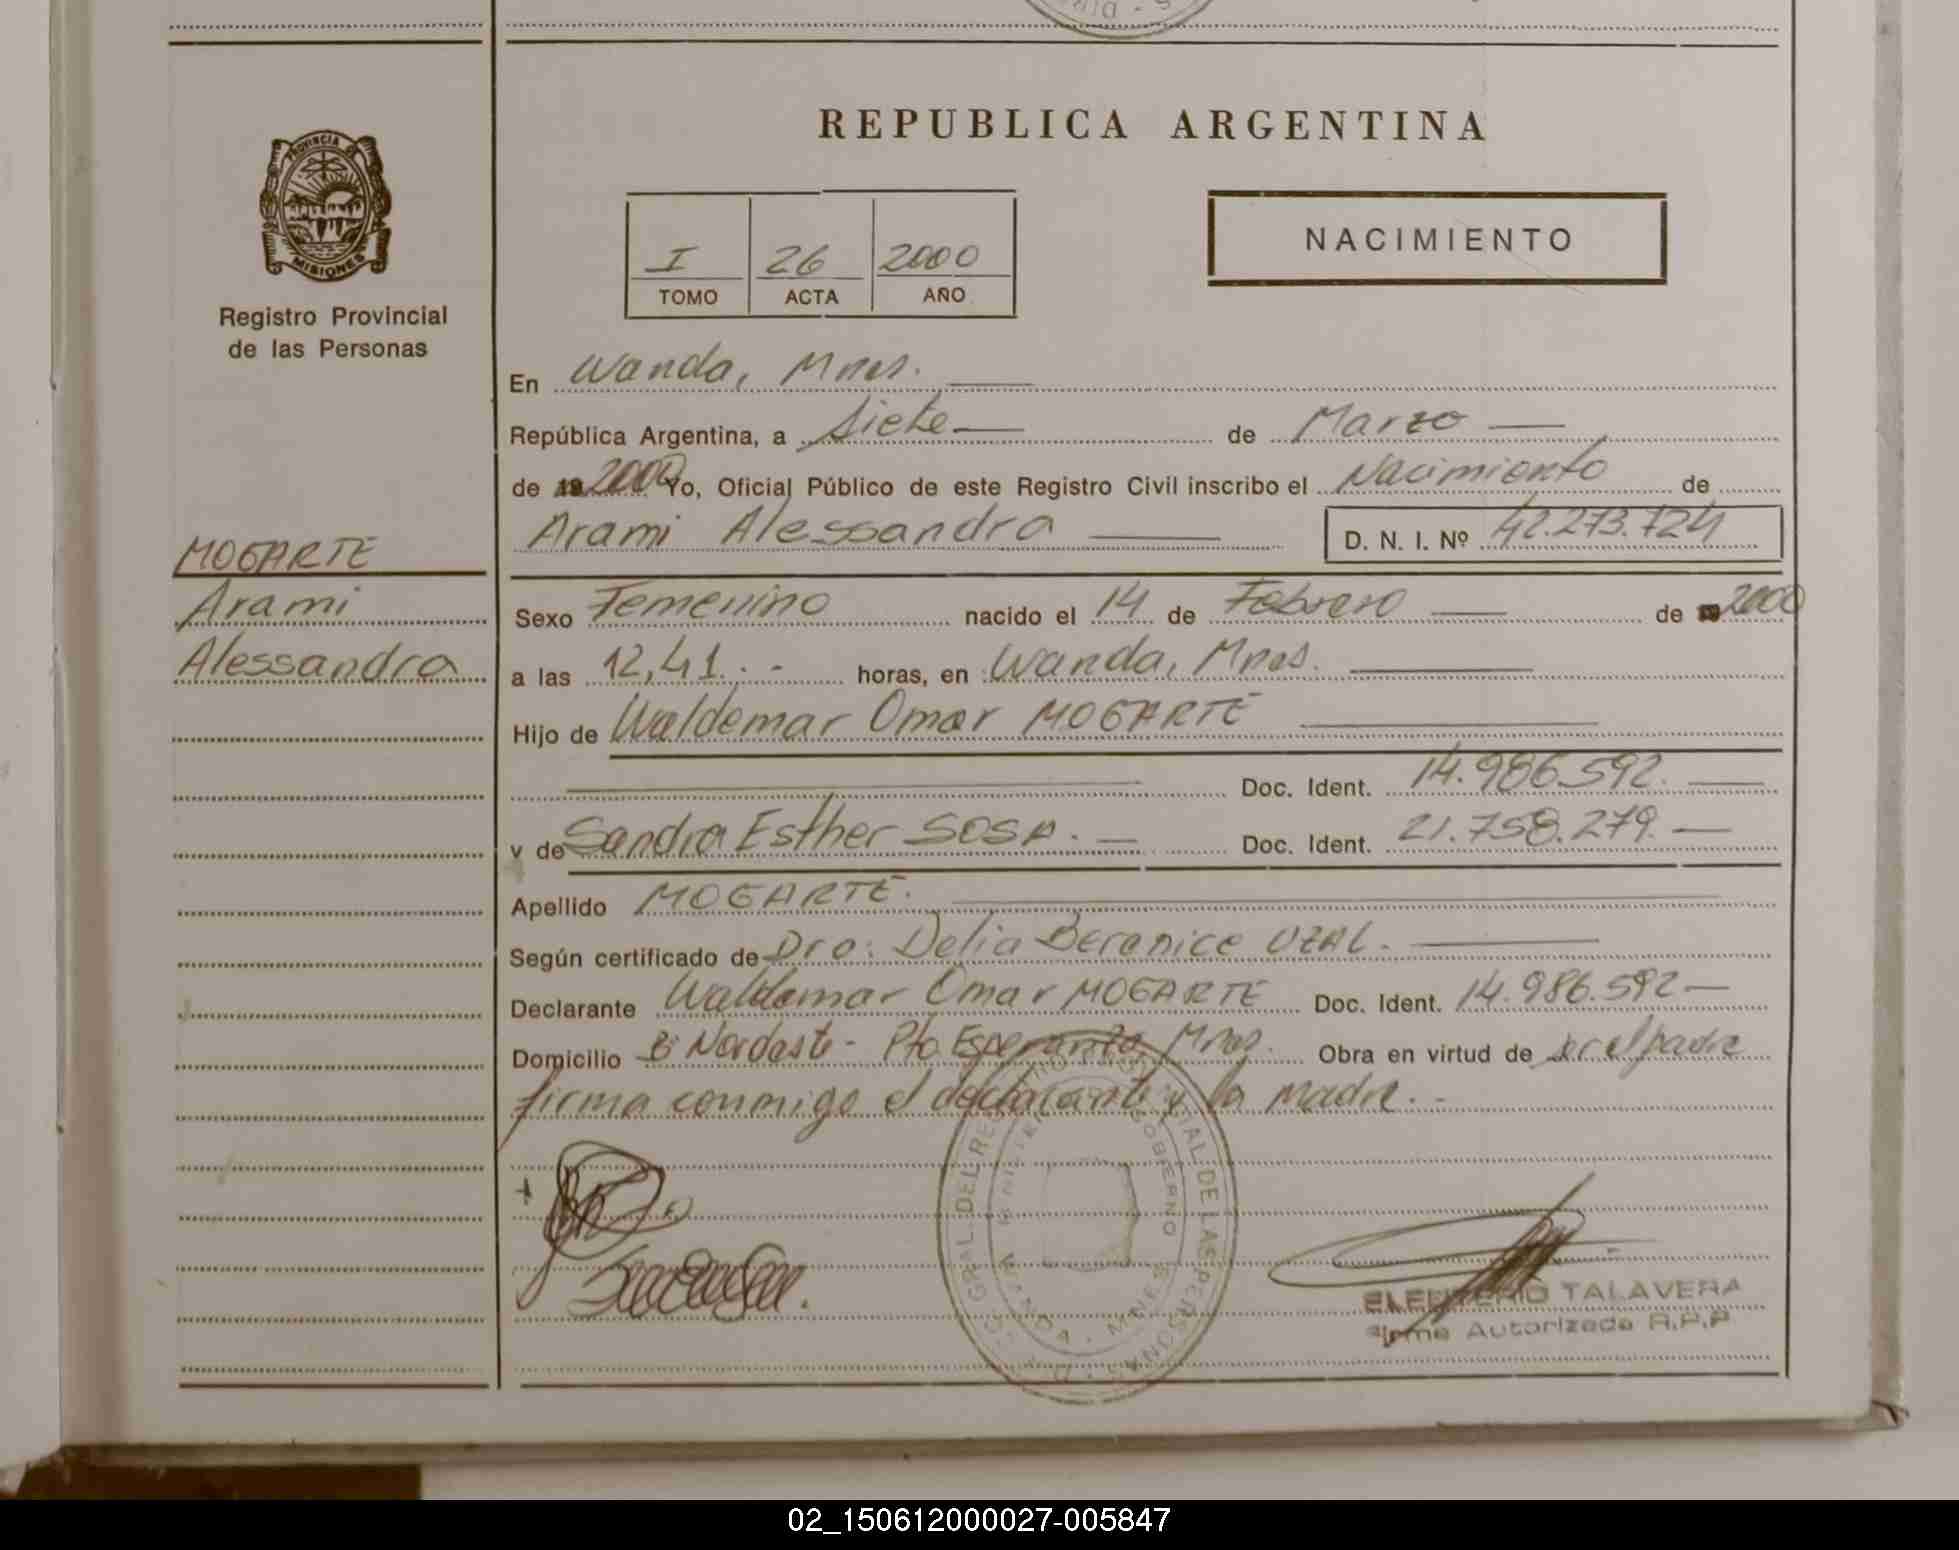 REPUBLICA ARGENTINA
PROVINCIA DE
MISIONES
Registro Provincial
de las Personas
I 26 2000
TOMO ACTA AÑO
NACIMIENTO
En Wanda, Mnes.
República Argentina, a Siete de Marzo
de 19 2000 Yo, Oficial Público de este Registro Civil inscribo el Nacimiento de
Arami Alessandra D. N. I. Nº 42.273.724
MOGARTE
Arami
Alessandra
Sexo Femenino nacido el 14 de Febrero de 2000
a las 12,41.- horas, en Wanda, Mnes.
Hijo de Waldemar Omar MOGARTE
Doc. Ident. 14.986.592.
y de Sandra Esther SOSA. Doc. Ident. 21.758.279.
Apellido MOGARTE.
Según certificado de Dra: Delia Berenice UZAL.
Declarante Waldemar Omar MOGARTE Doc. Ident. 14.986.592
Domicilio Bº Nordeste - Pto Esperanza, Mnes. Obra en virtud de ser el padre
firma conmigo el declarante y la madre.-
DEL REG PROVINCIAL DE LAS PERSONAS
GOBIERNO
WANDA - MNES
ELEUTERIO TALAVERA
Firma Autorizada R.P.P
02_150612000027-005847